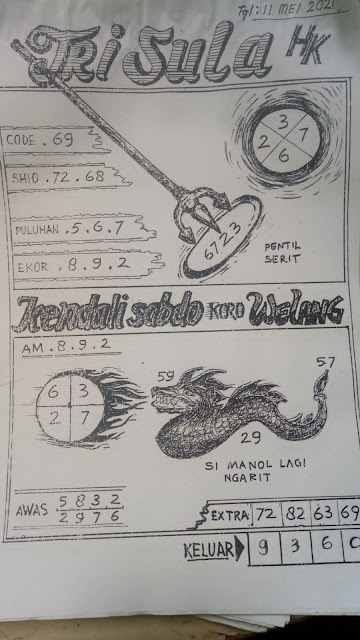 Tgl: 11 MEI 2021
Tri Sula HK
CODE . 69
SHIO . 72 . 68
PULUHAN . 5 . 6 . 7
EKOR . 8 . 9 . 2
3
2 7
6
6723
PENTIL
SERIT
Kendali sabdo KORO Welang
AM . 8 . 9 . 2
6 3
2 7
59
57
29
SI MANOL LAGI
NGARIT
AWAS 5 8 3 2
2 9 7 6
EXTRA 72 82 63 69
KELUAR 9 3 6 0